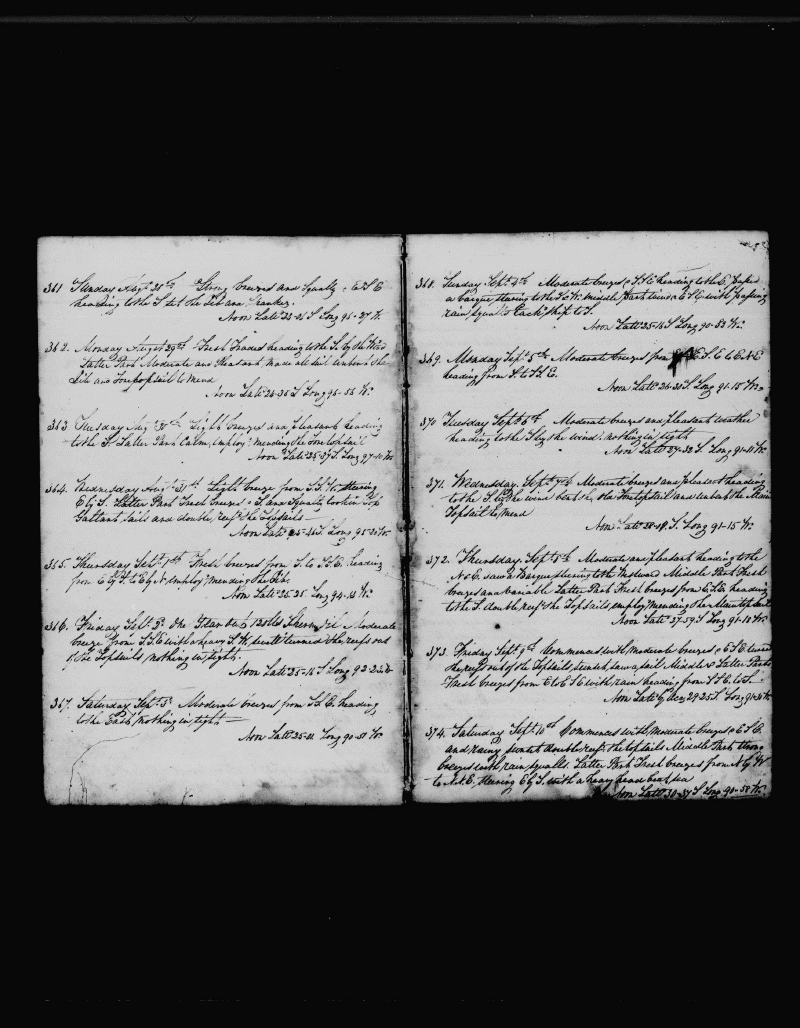 361 Sunday Augt 28th Strong breezes and Squally E S E
heading to the S. set the Jib and Spanker.
Noon Latd 23-25 S Long 95-27 W.
362. Monday August 29th Fresh Trades heading to the S. by the Wind
Latter Part Moderate and Pleasant, made all sail unbend the
Jib and Foretopsail to mend
Noon Latd 24-35 S Long 96-56 W.
363 Tuesday Aug 30th Light breezes and pleasant heading
to the S. Latter Part Calm, employ mending the Foretopsail
Noon Latd 25-37 S. Long 97-10 W.
364. Wednesday Augt 31st Light breeze from S.S.W. steering
E by S. Latter Part Fresh breezes S. and Squally took in Top
Gallant sails and double reefd the Topsails
Noon Latd 25-45 S. Long 95-30 W.
365. Thursday Sept 1st Fresh breezes from S. to S.S.E. heading
from E by S. to E by N. employ mending the Jib.
Noon Latd 25-35 Long 94-18 W.
366. Friday Sept 2d One Year out 1250 bls Sperm Oil Moderate
breeze from S.S.E with a heavy S.W. swell turned the reefs out
of the Topsails, nothing in sight.
Noon Latd 25-16 S Long 92-22 W.
367. Saturday Sept 3d Moderate breezes from S.S.E. heading
to the East, nothing in sight
Noon Latd 25-21 Long 90-51 W.
368. Sunday Sept 4th Moderate breezes S.S.E heading to the E,
a barque steering to the S.W. Middle Part wind E S E with passing
rain squalls tack ship to S.
Noon Latd 25-16 S Long 90-53 W.
369. Monday Sept 5th Moderate breezes from E.S.E to E.N.E
heading from S. to S.S.E.
Noon Latd 26-30 S. Long 91-15 W.
370 Tuesday Sept 6th Moderate breezes and pleasant weather
heading to the S by the wind. nothing in sight
Noon Latd 27-32 S. Long 91-11 W.
371. Wednesday. Sept 7th Moderate breezes and pleasant heading
to the S. by the wind bent the Foretopsail and unbent the Main
Topsail to mend
Noon Latd 28-18 S. Long 91-15 W.
372. Thursday Sept 8th Moderate and pleasant heading to the
saw a Barque steering to the Westward Middle Part Fresh
breezes and variable Latter Part Fresh breezes from E.S.E. heading
to the S. double reefd the Topsails employ mending the Main
Noon Latd 27-59 S Long 91-10 W.
373. Friday Sept 9th Commences with moderate breezes E S E turned
the reefs out of the Topsails, saw a sail Middle & Latter Parts
Fresh breezes from E to E S E with rain heading from S S E. to S.
Noon Latd by 29-25 S. Long 91-5 W
374. Saturday Sept 10th Commences with moderate breezes E S E.
and rainy double reefd the topsails Middle Part Strong
breezes with rain squalls. Latter Part Fresh breezes from N by W
to N.N.E. steering E by S. with a heavy head beat sea
Noon Latd 30-37 S Long 90-58 W.